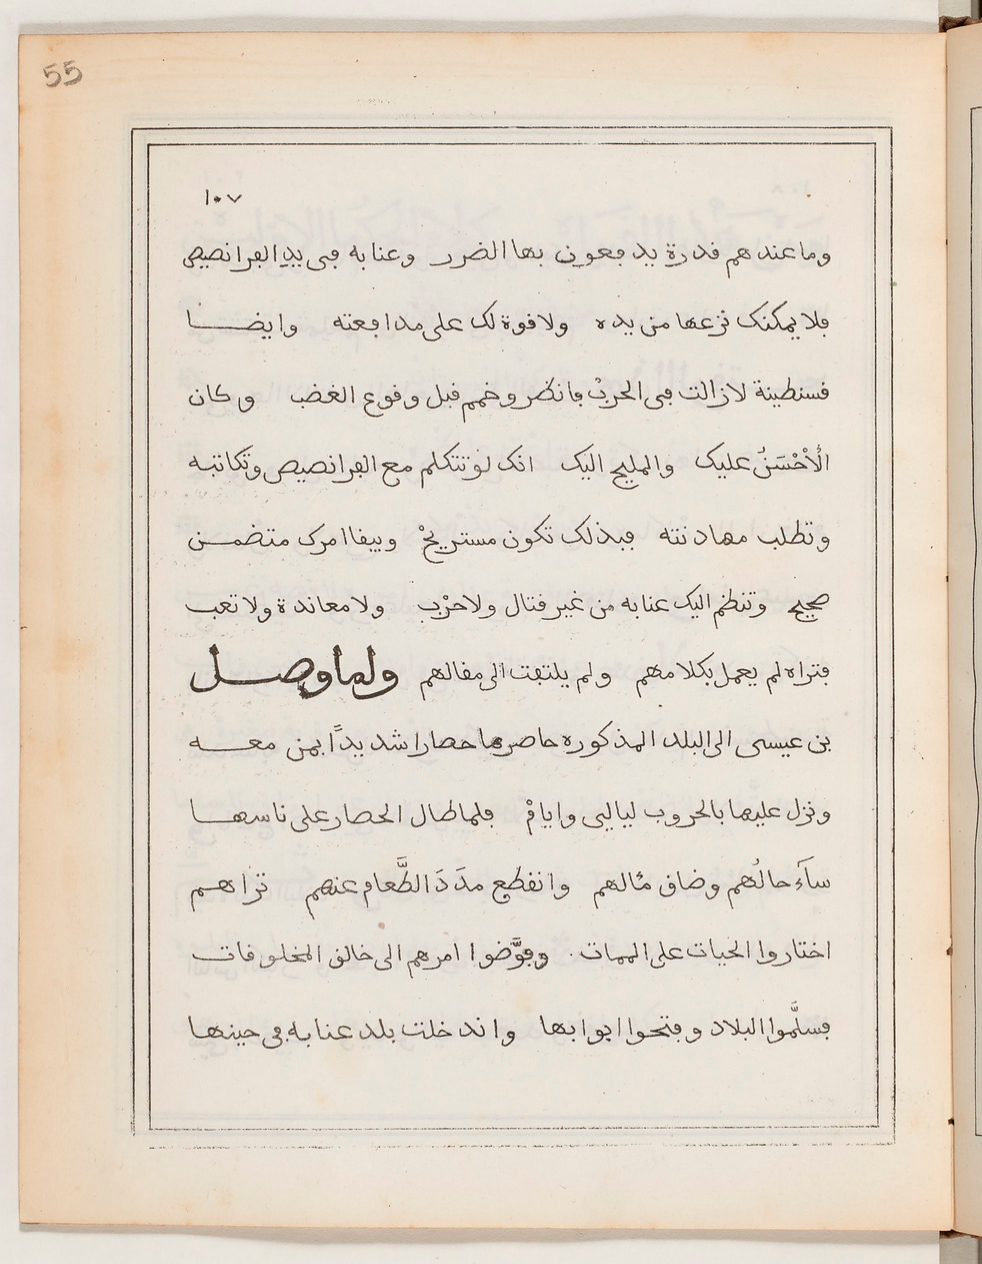 55
١٠٧
وما عندهم قدرة يدفعون بها الضرر وعنابه في يد الفرانصيص
فلا يمكنك نزعها من يده ولا قوة لك على مدافعته وايضـــا
قسنطينة لا زالت في الحربْ فانظر وخمم قبل وقوع الغضب وكان
الْأَحْسَنُ عليك والمليح اليك انك لو تتكلم مع الفرانصيص وتكاتبه
وتطلب مهادنته فبذلك تكون مستريحْ ويبقا امرك متضمــن
صحيح وتنظم اليك عنابه من غير قتال ولا حرْب ولا معاندة ولا تعب
فتراه لم يعمل بكلامهم ولم يلتفت الى مقالهم ولما وصــل
بن عيسى الى البلد المذكوره حاصرها حصارا شديداً بمن معــه
ونزل عليها بالحروب ليالي وايامْ فلما طال الحصار على ناسهــا
سآءَ حالُهم وضاق مٰالهم وانقطع مدَدَ الطَّعام عنهم تراهــم
اختاروا الحيات على الممات وفوَّضوا امرهم الى خالق المخلوقات
فسلَّموا البلاد وفتحوا ابوابها واندخلت بلد عنابه في حينهــا